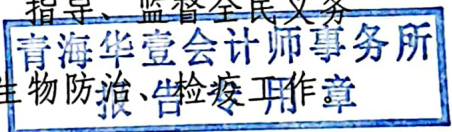 指导、监督全民义务
青海华壹会计师事务所
生物防治、检疫工作。
报告专用章